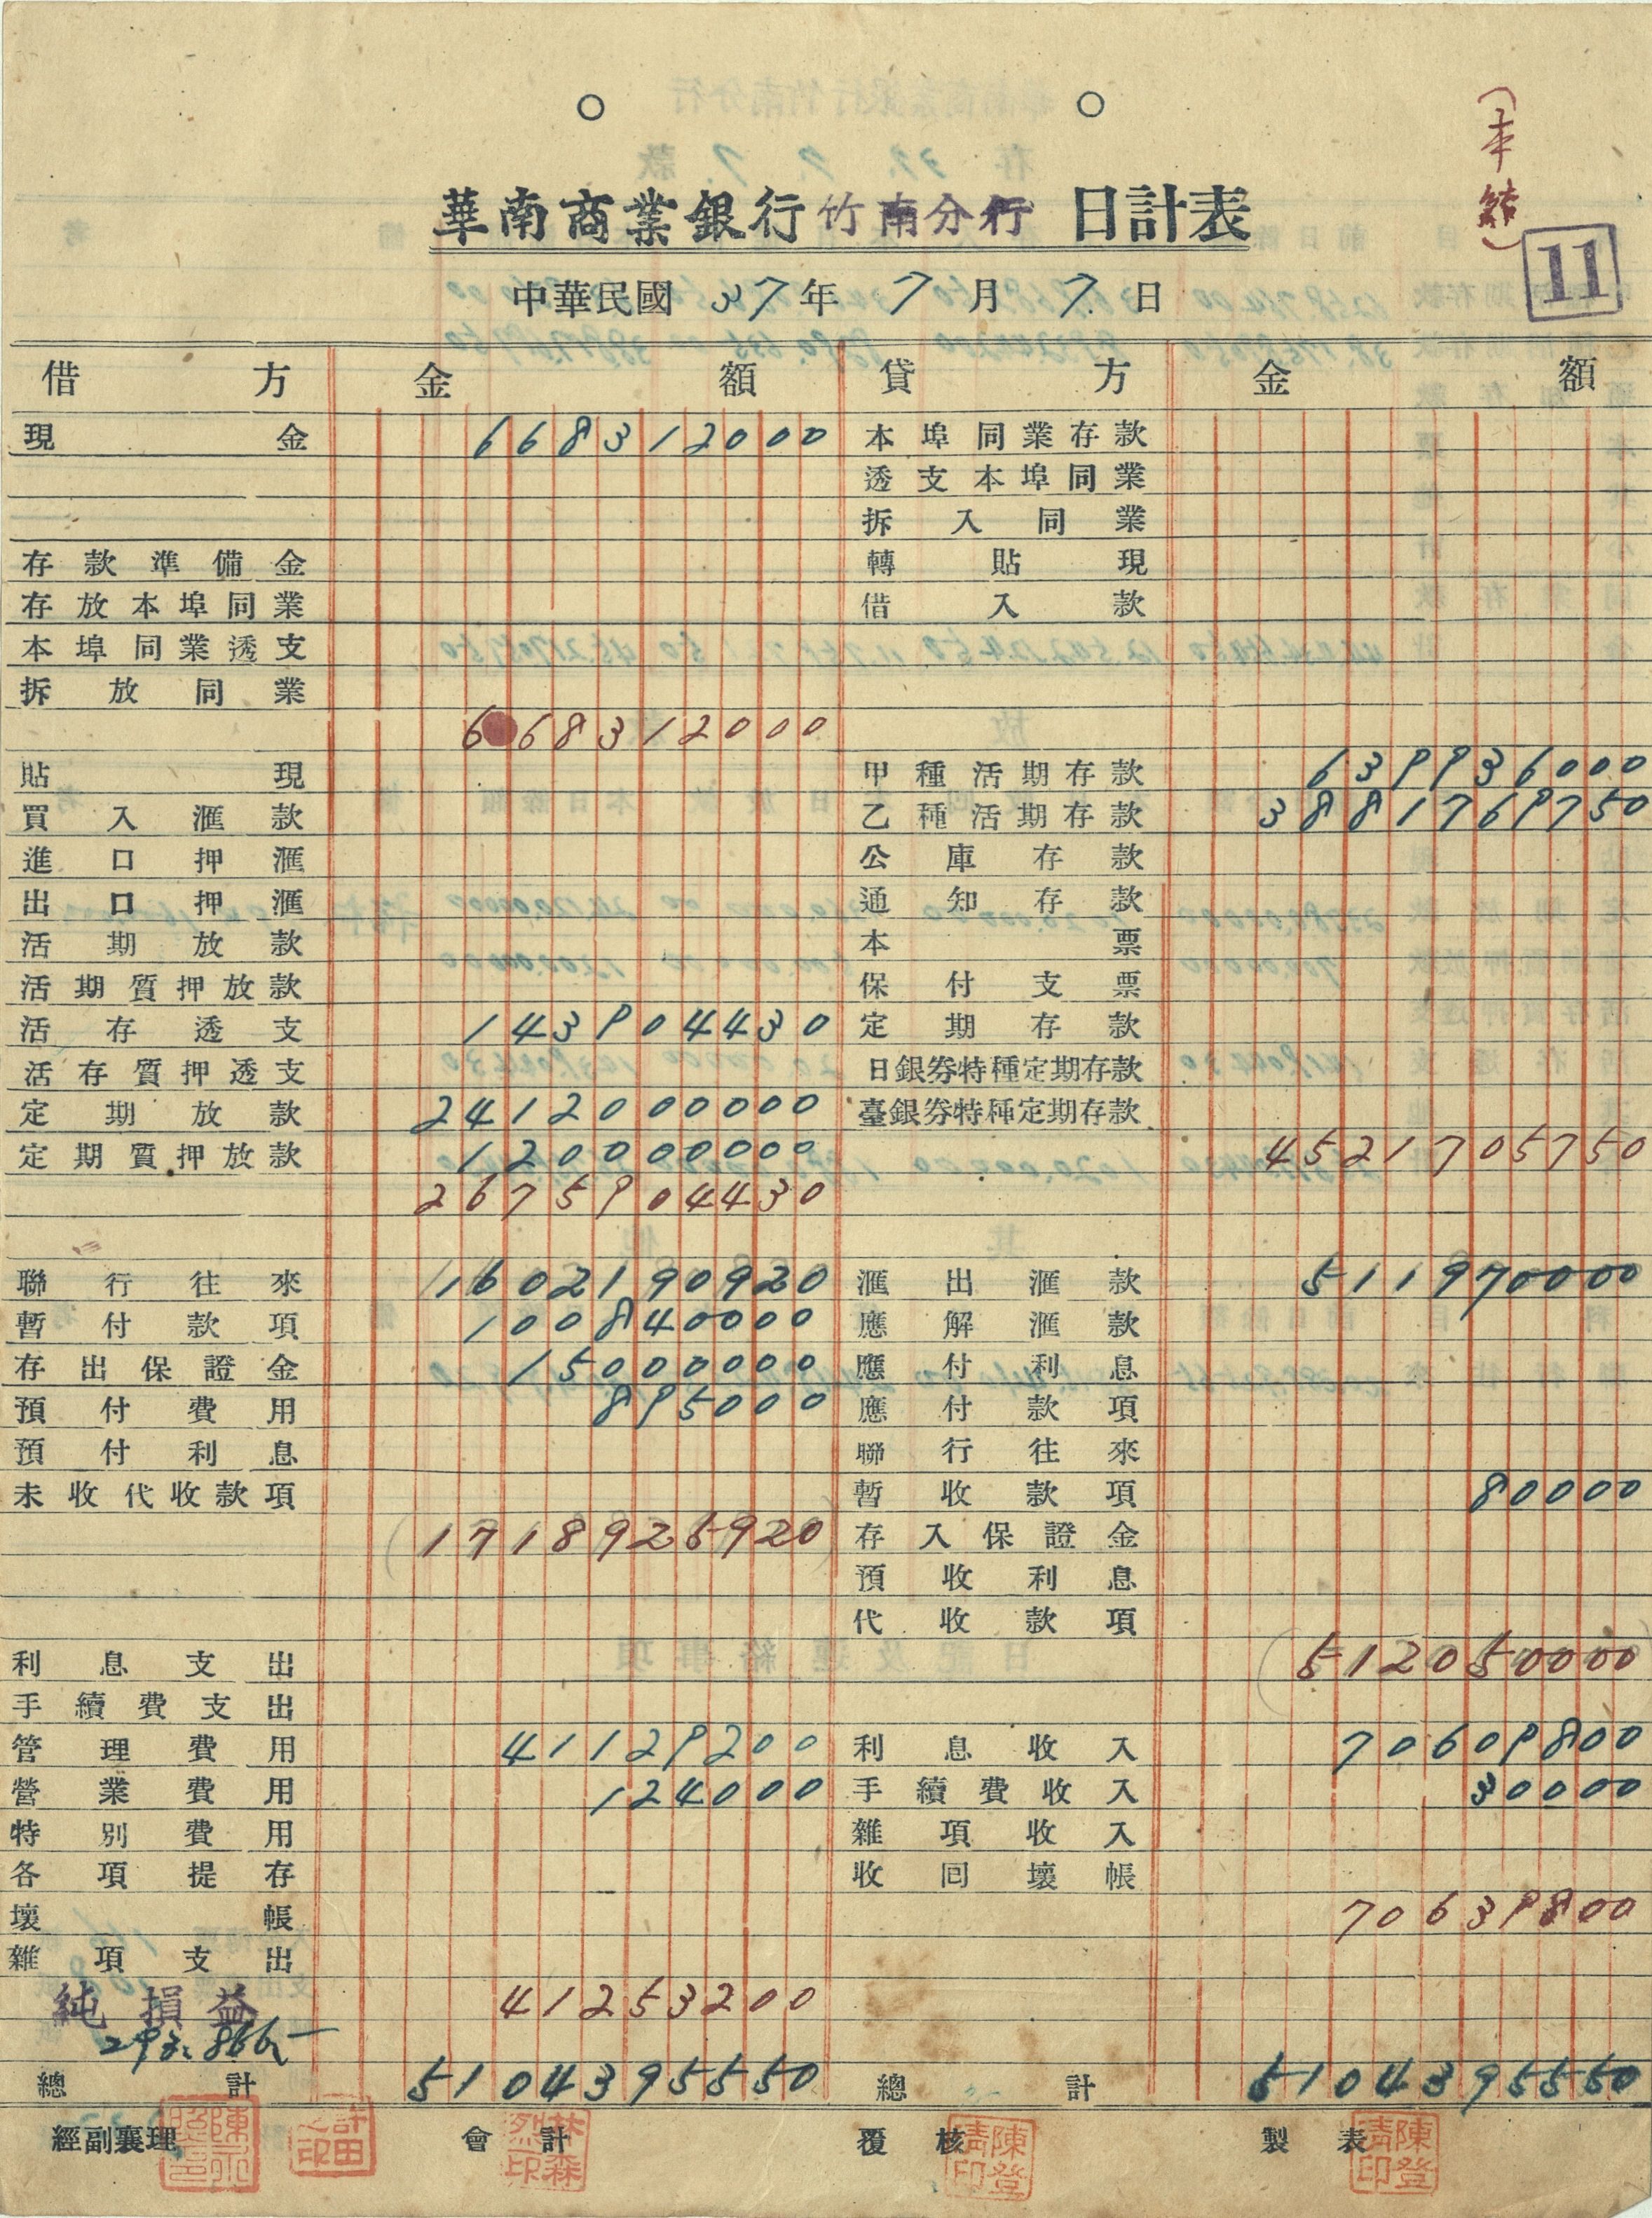 (本結)
華南商業銀行竹南分行 日計表
11
中華民國 37年 7月 7日
借方 金額 貸方 金額
現金 668312000 本埠同業存款
透支本埠同業
拆入同業
存款準備金 轉貼現
存放本埠同業 借入款
本埠同業透支
拆放同業
668312000
貼現 甲種活期存款 639936000
買入滙款 乙種活期存款 3881769750
進口押滙 公庫存款
出口押滙 通知存款
活期放款 本票
活期質押放款 保付支票
活存透支 143904430 定期存款
活存質押透支 日銀券特種定期存款
定期放款 2412000000 臺銀券特種定期存款
定期質押放款 120000000 4521705750
2675904430
聯行往來 1602190920 滙出滙款 511970000
暫付款項 100840000 應解滙款
存出保證金 15000000 應付利息
預付費用 895000 應付款項
預付利息 聯行往來
未收代收款項 暫收款項 80000
1718925920 存入保證金
預收利息
代收款項
利息支出 512050000
手續費支出
管理費用 41129200 利息收入 70609800
營業費用 124000 手續費收入 30000
特別費用 雜項收入
各項提存 收回壞帳
壞帳 70639800
雜項支出
純損益 41253200
293,866
總計 5104395550 總計 5104395550
經副襄理 會計 覆核 製表
林森烈印 陳登清印 陳登清印